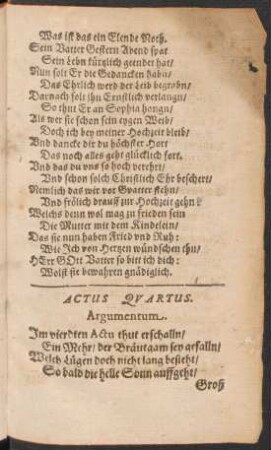 Was ist das ein Elende Noth.
Sein Vatter Gestern Abend spat
Sein Lebn kürtzlich geendet hat/
Nun solt Er die Gedancken habn/
Das Ehrlich werd der Leib begrabn/
Darnach solt ihn Ernstlich verlangn/
So thut Er an Sophia hangn/
Als wer sie schon sein eygen Weib/
Doch ich bey meiner Hochzeit bleib/
Vnd dancke dir du höchster Hort
Das noch alles geht glücklich fort.
Vnd das du vns so hoch verehrt/
Vnd schon solch Christlich Ehr beschert/
Nemlich das wir vor Gvatter stehn/
Vnd frölich drauff zur Hochzeit gehn:
Welchs denn wol mag zu frieden sein
Die Mutter mit dem Kindelein/
Das sie nun haben Fried vnd Ruh:
Wie Ich von Hertzen wündschen thu/
HErr GOtt Vatter so bitt ich dich:
Wolst sie bewahren gnädiglich.
ACTUS QVARTUS.
Argumentum.
Im vierdten Actu thut erschalln/
Ein Mehr/ der Bräutgam sey gefalln/
Welch Lügen doch nicht lang besteht/
So bald die helle Sonn auffgeht/
Groß